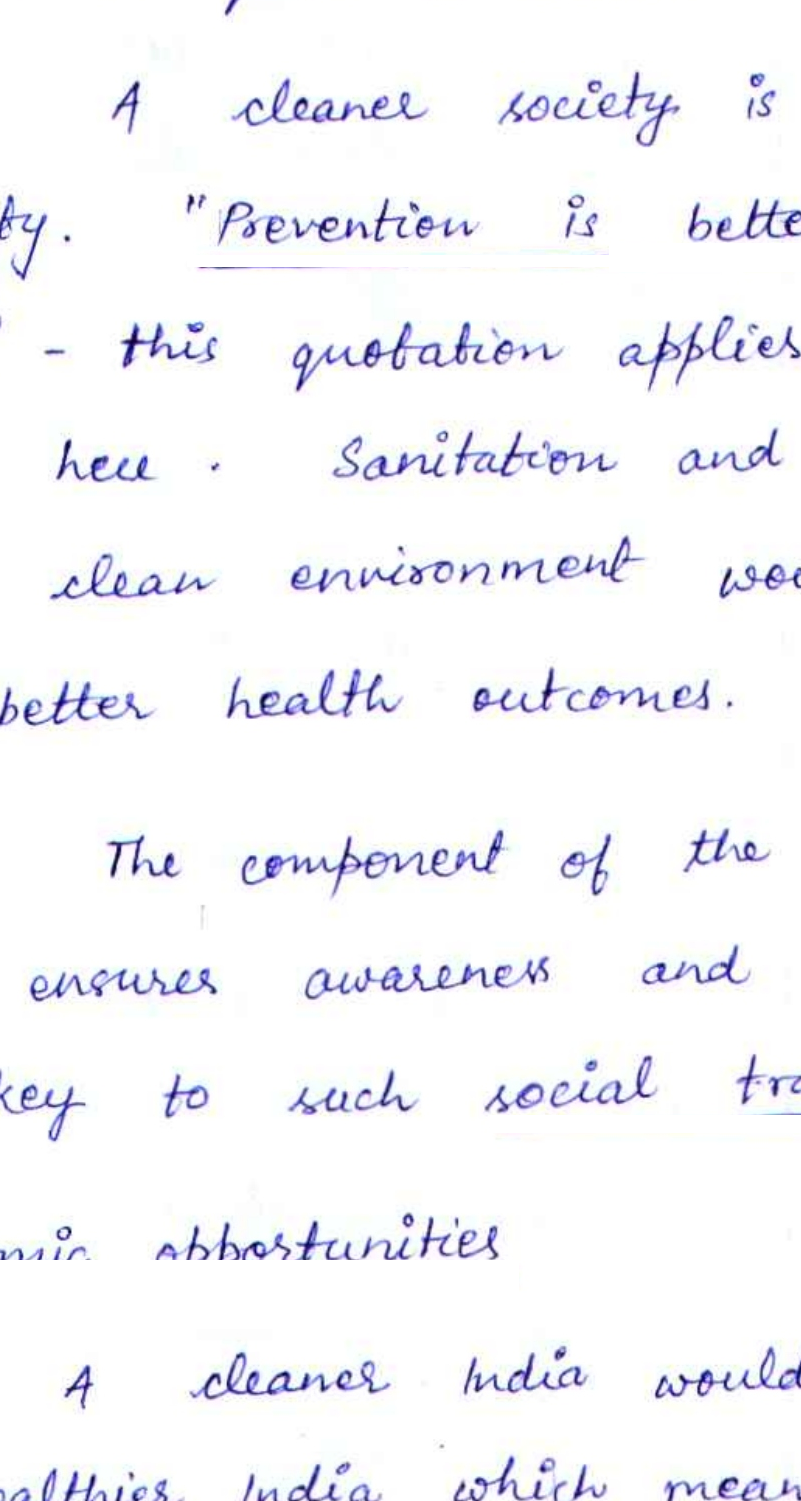 A cleaner society is
ty. "Prevention is bette
- this quotation applies
here. Sanitation and
clean environment wou
better health outcomes.
The component of the
ensures awareness and
key to such social tra
mic opportunities
A cleaner India would
althier India which mean